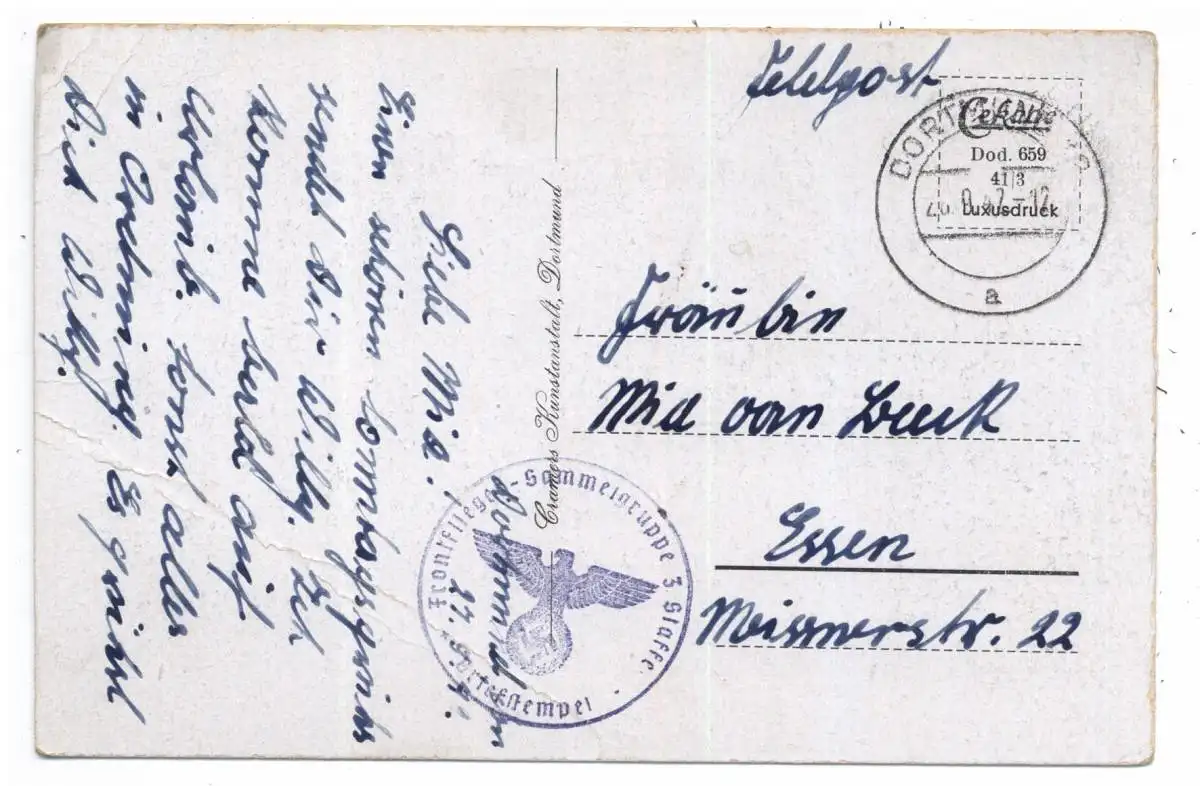 Feldpost
Cekade
Dod. 659
41/3
Luxusdruck
DORTMUND
a
Fräulein
Mia van Beek
Essen
Meissnerstr. 22
Cramers Kunstanstalt, Dortmund
Frontflieger-Sammelgruppe 3 Staffel
Briefstempel
Dortmund den
27.
Liebe Mia.
Einen schönen Sonntagsgruss
sendet Dir Willy. Ich
komme bald auf
Urlaub. Sonst alles
in Ordnung. Es grüsst
Dich Willy.